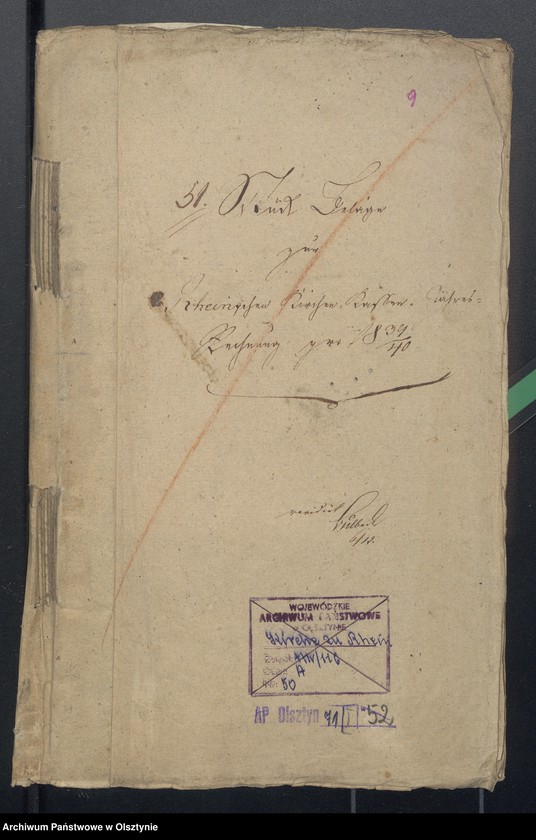 9
51. Stück Beläge
zur
Rheinschen Kirchen-Kassen-Jahres-
Rechnung pro 1839/40
revidirt
6/12.
WOJEWÓDZKIE
ARCHIWUM PAŃSTWOWE
W OLSZTYNIE
Kirche zu Rhein
Zespół XXV/118
A
Nr. 50
AP Olsztyn 91/I 52
Archiwum Państwowe w Olsztynie